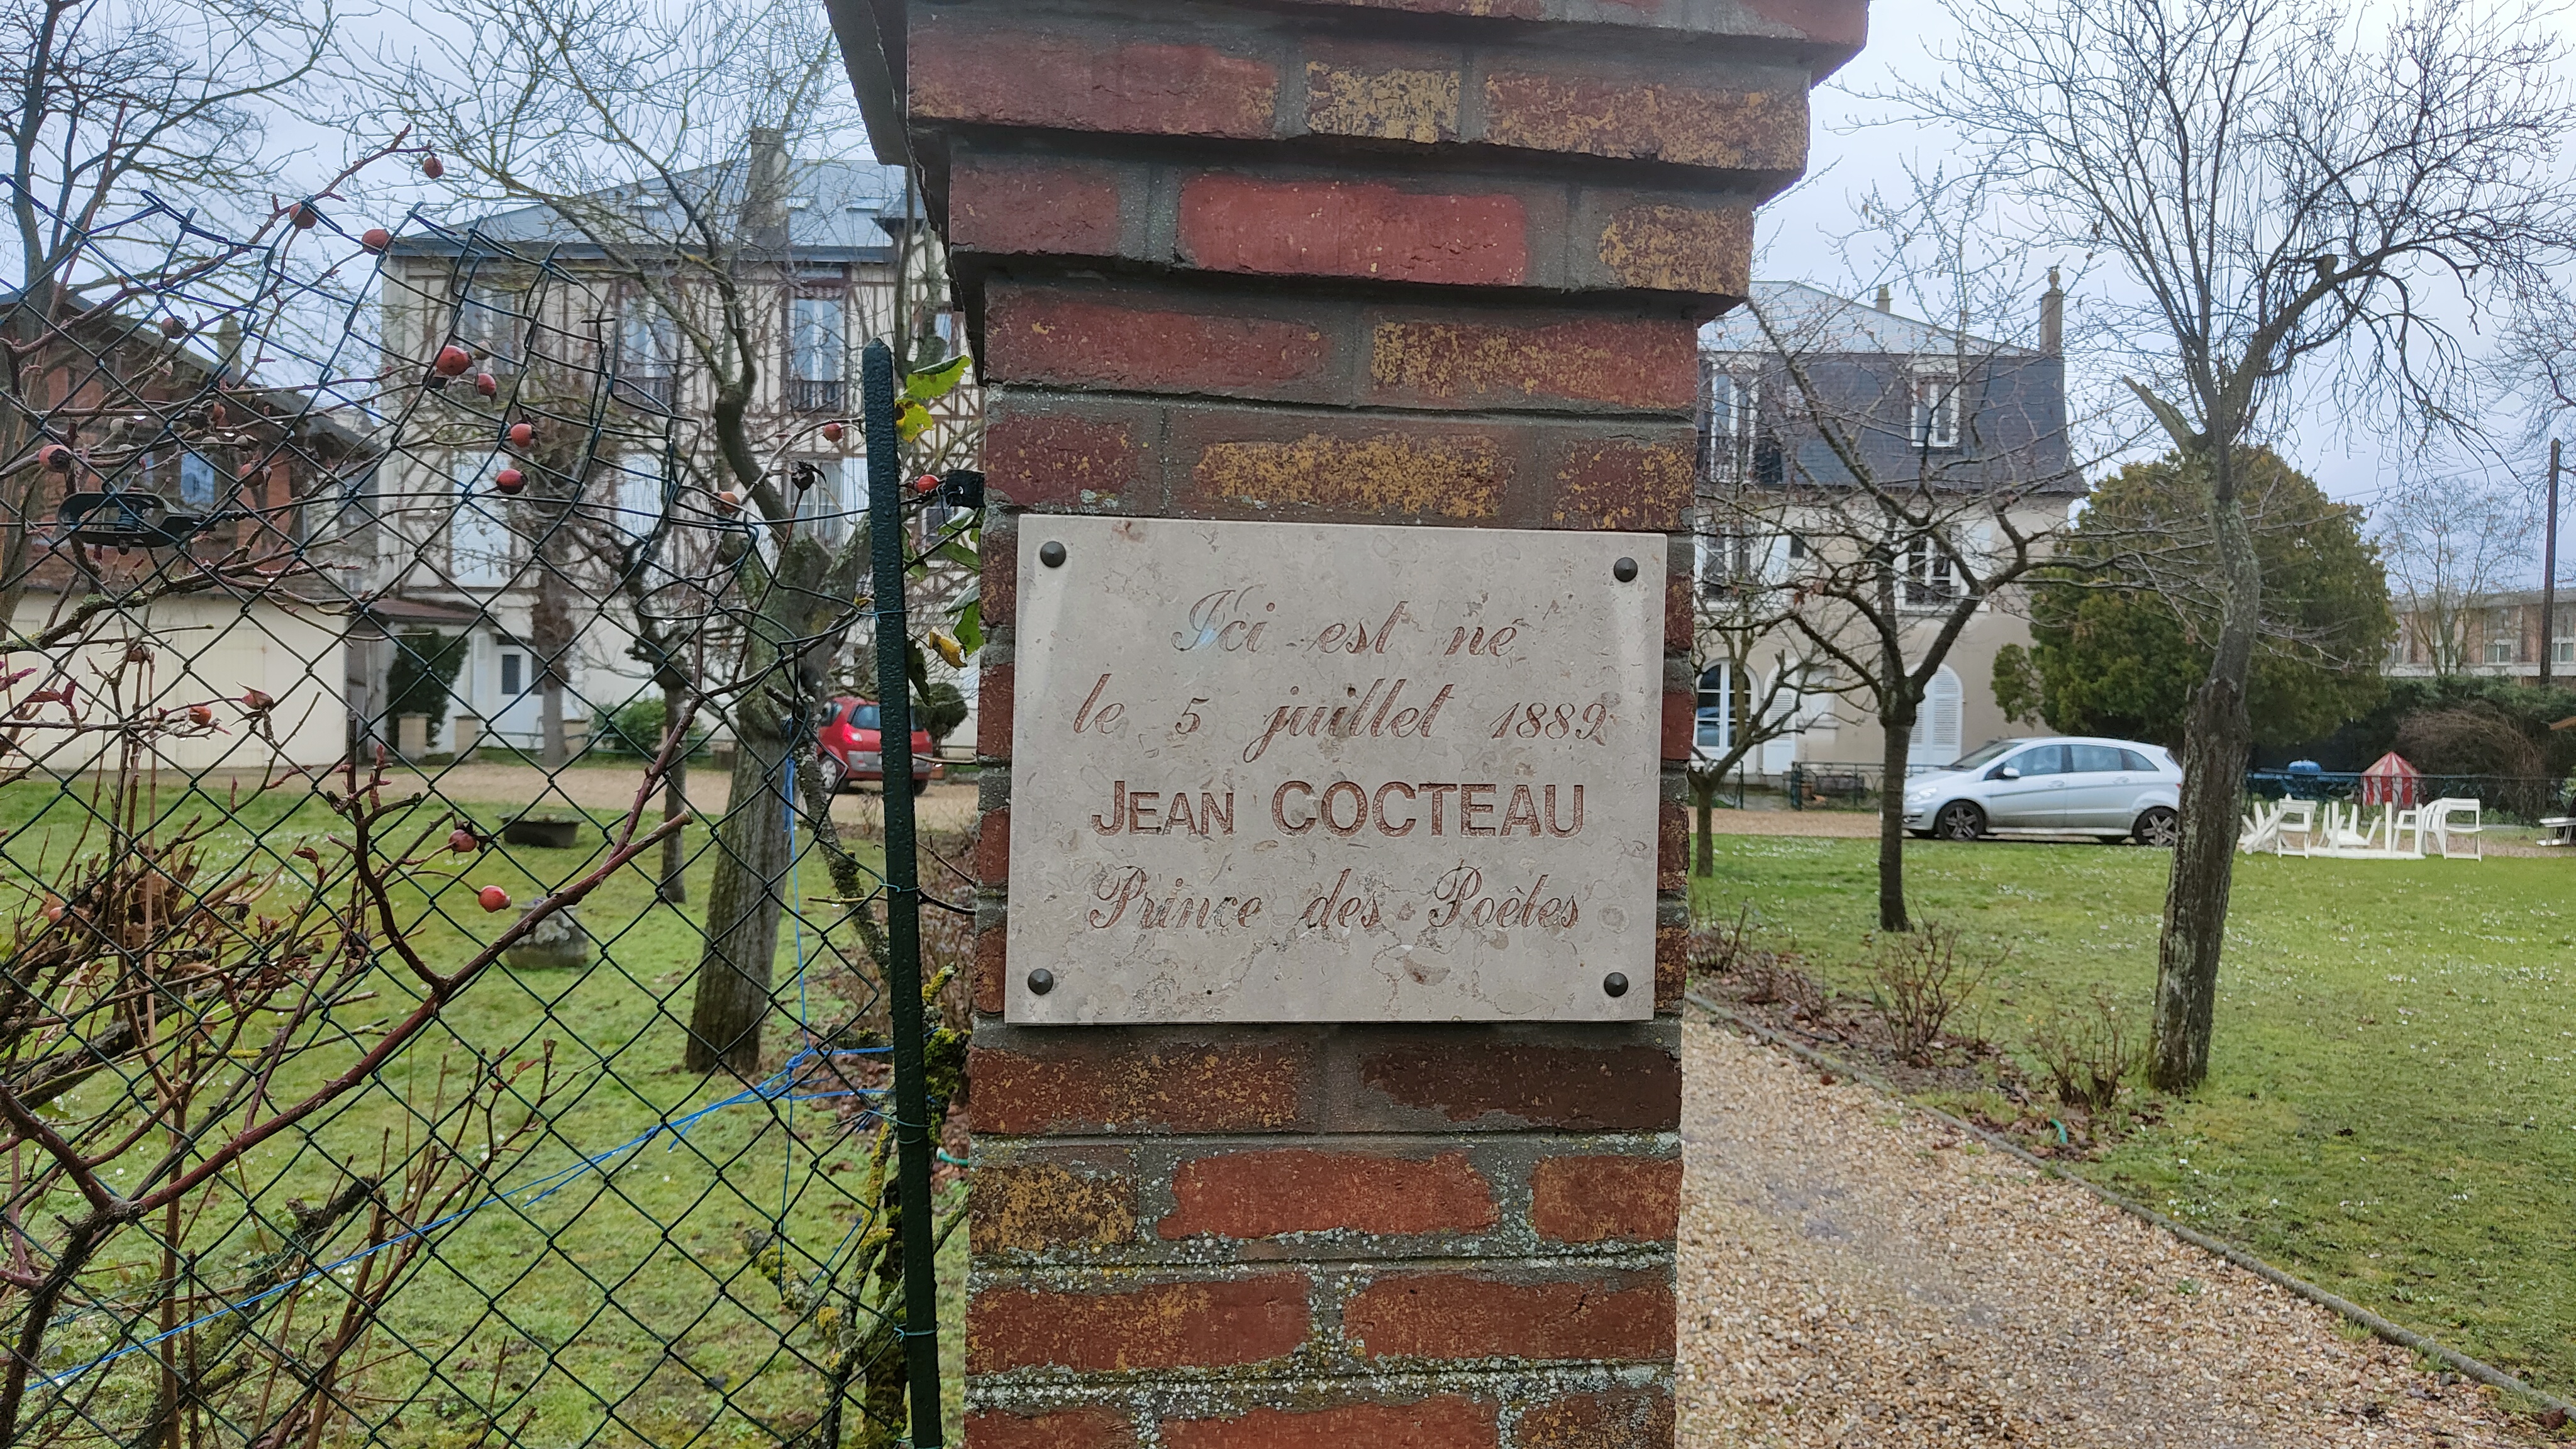 Ici est né
le 5 juillet 1889
JEAN COCTEAU
Prince des Poètes